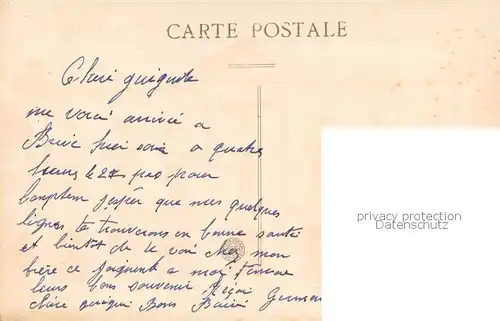 CARTE POSTALE
me voici arrivée a
Brive hier soir a quatre
heures le 27 pas pour
longtemps j'espère que mes quelques
lignes te trouverons en bonne santé
et bientôt de te voir Mon
frère ce joignent a moi
leurs bon souvenir reçoi
Bons Baisé Germai
privacy protection
Datenschutz